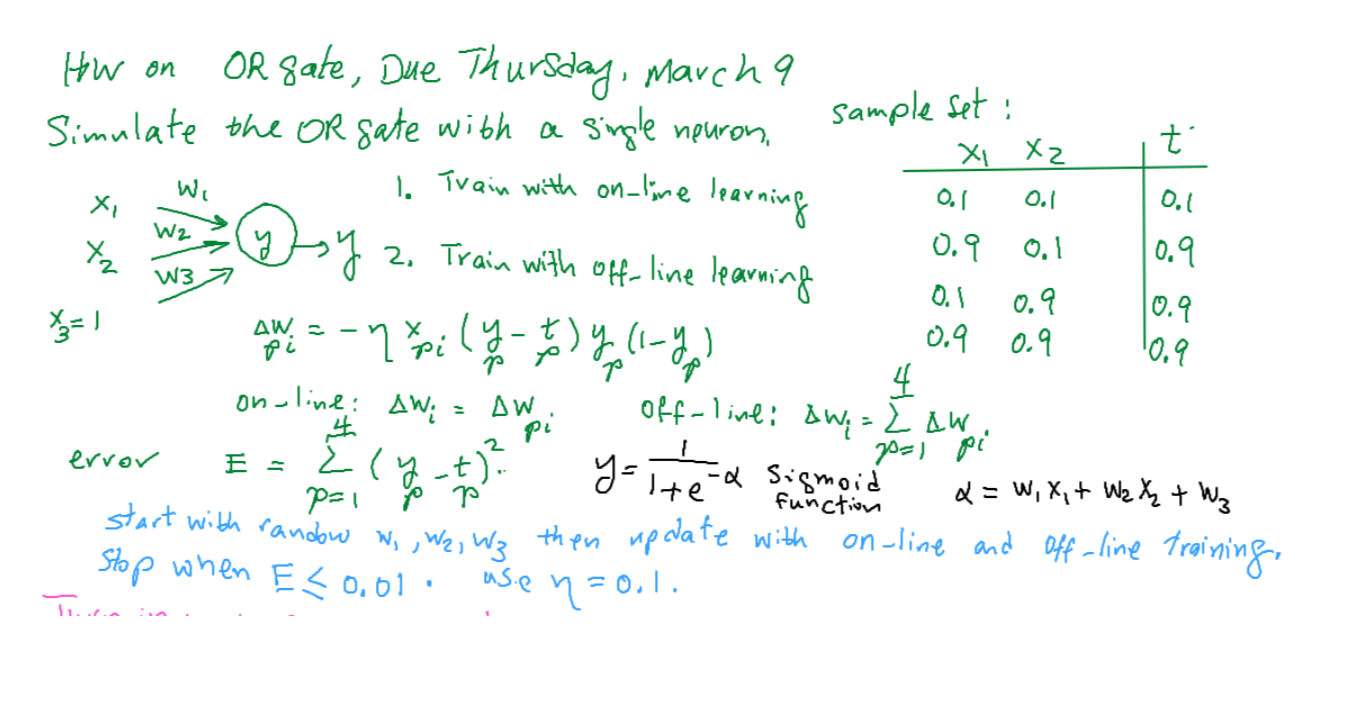 HW on OR gate, Due Thursday, March 9
Simulate the OR gate with a single neuron,
sample set :
x₁ x₂ t
0.1 0.1 0.1
0.9 0.1 0.9
0.1 0.9 0.9
0.9 0.9 0.9
x₁ w₁
x₂ w₂ y → y
x₃=1 w₃
1. Train with on-line learning
2. Train with off-line learning
Δw_pi = -η x_pi (y_p - t_p) y_p (1-y_p)
on-line: Δw_i = Δw_pi
off-line: Δw_i = Σ_{p=1}^{4} Δw_pi
error E = Σ_{p=1}^{4} (y_p - t_p)².
y = 1/(1+e^-α) sigmoid function
α = w₁x₁ + w₂x₂ + w₃
start with randow w₁, w₂, w₃ then update with on-line and off-line training.
Stop when E ≤ 0.01. use η = 0.1.